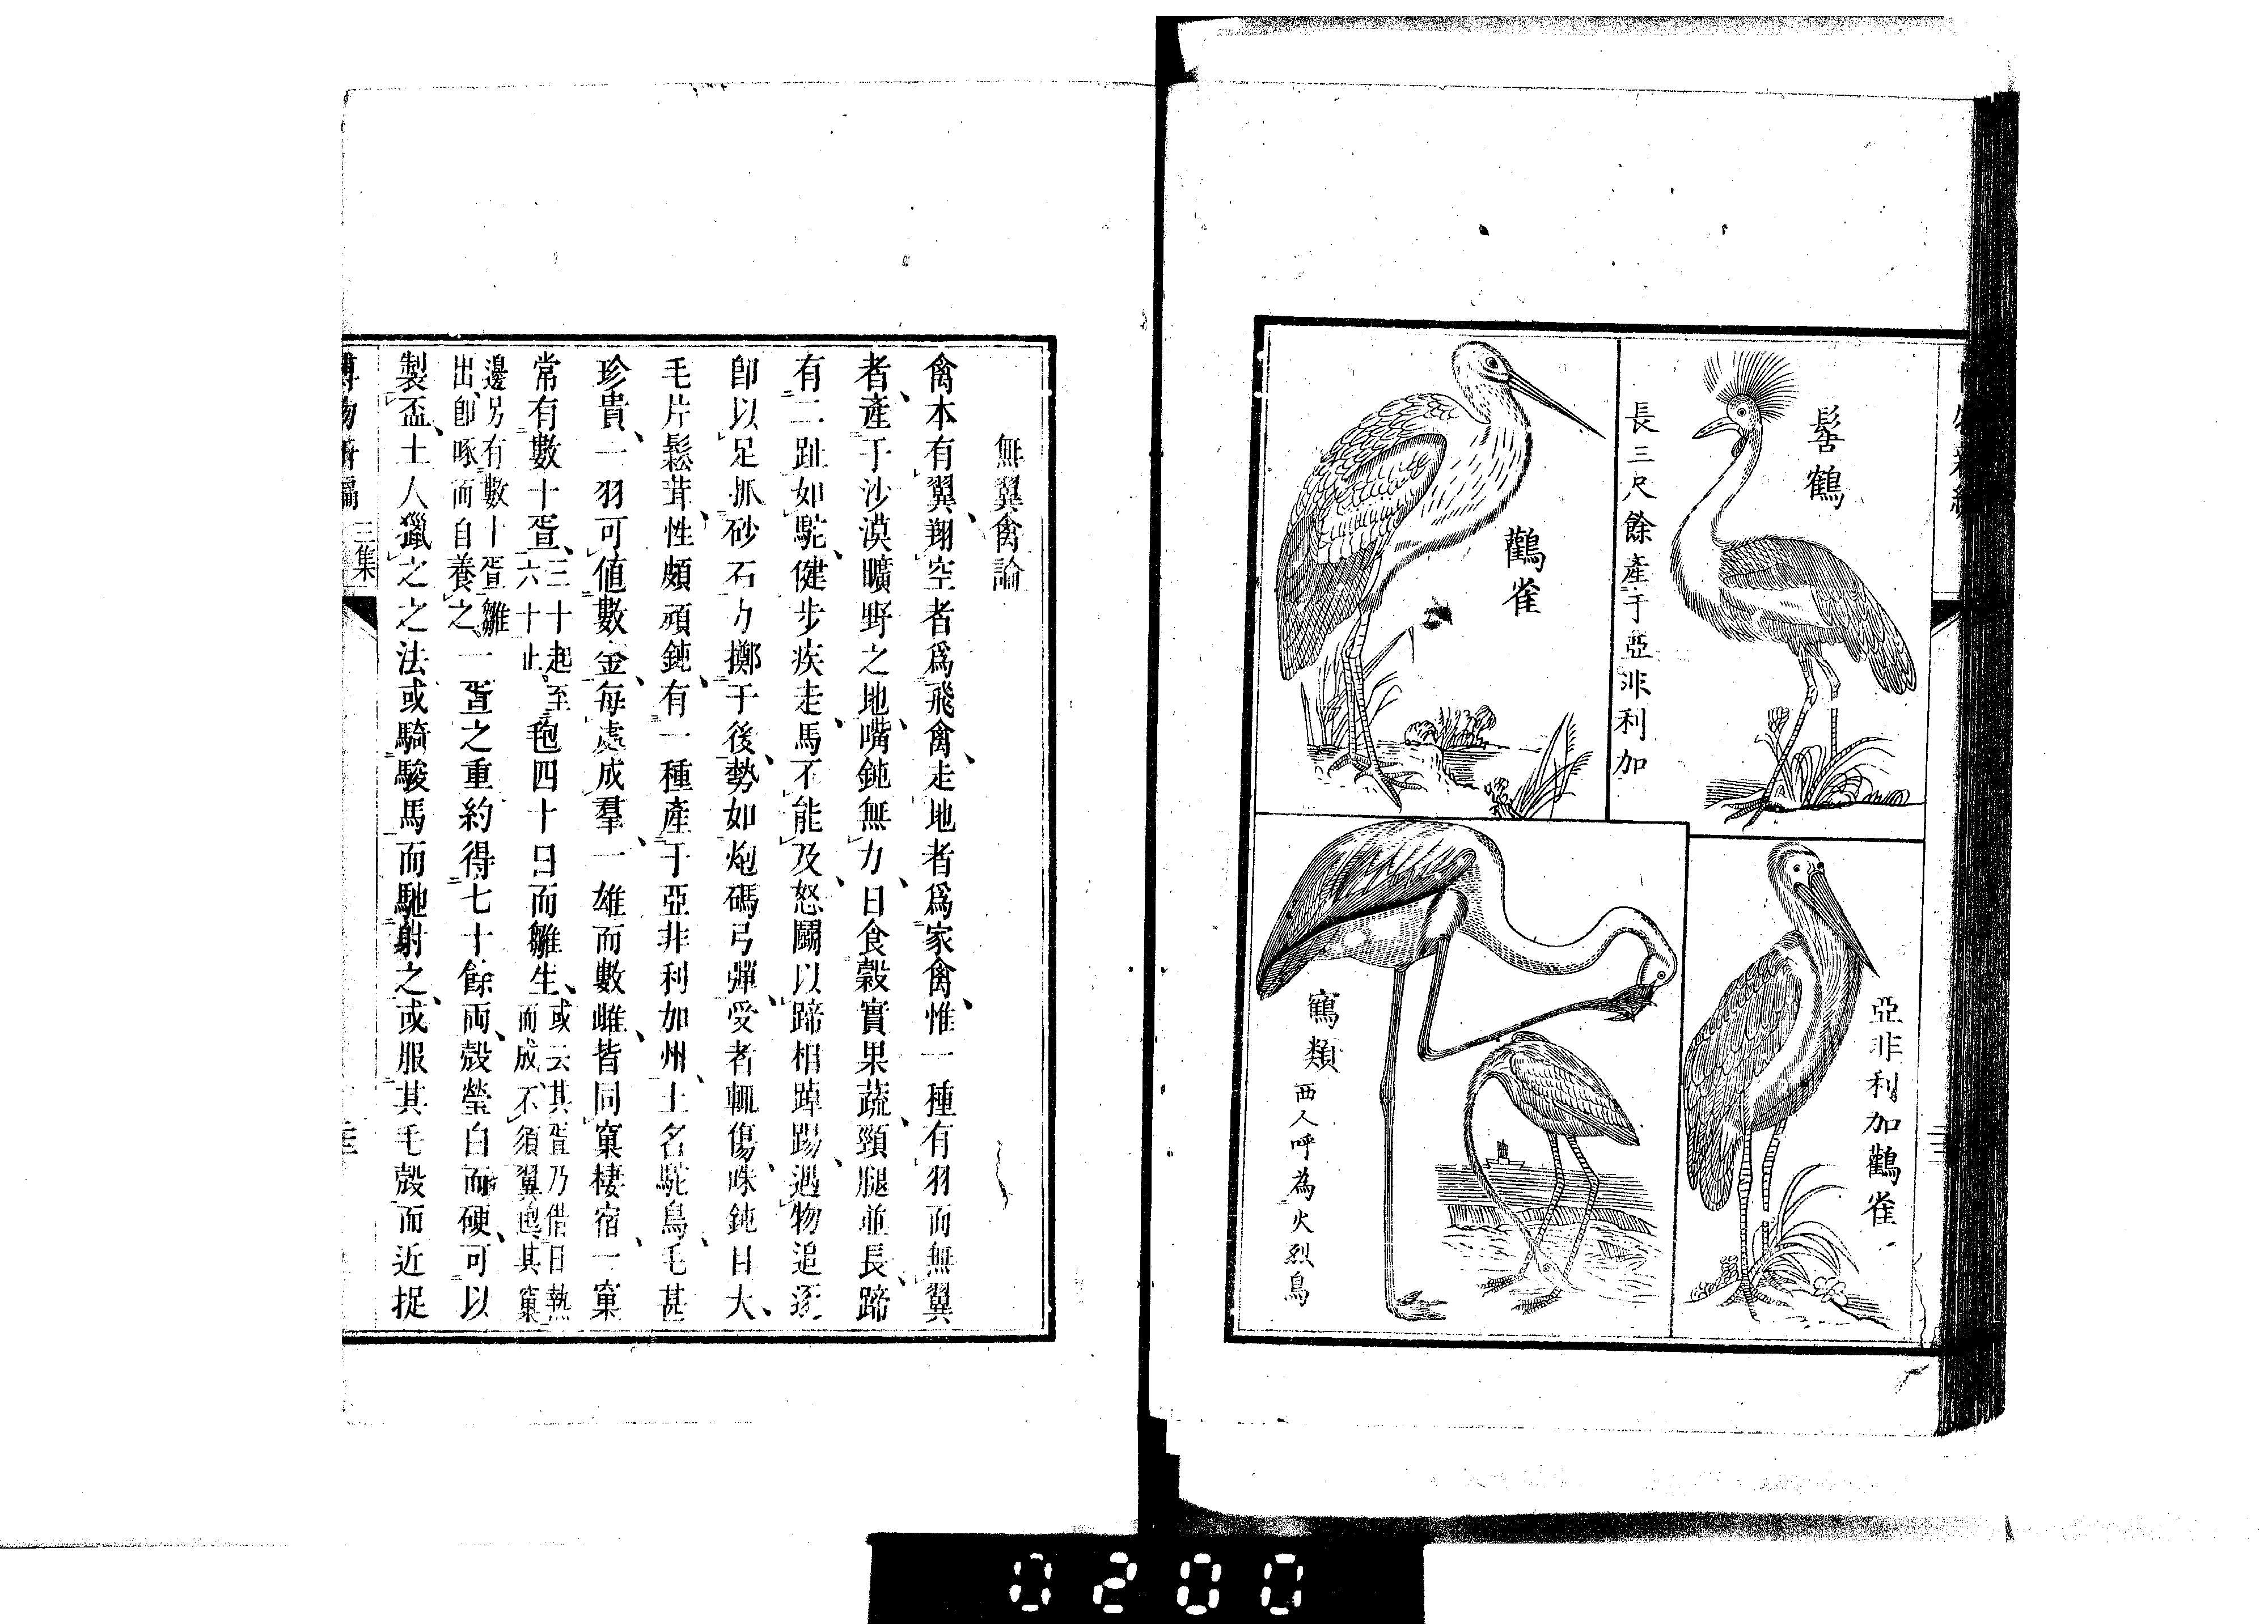 髻鶴
長三尺餘產于亞非利加
鸛雀
亞非利加鸛雀
鶴類
西人呼為火烈鳥
無翼禽論
禽本有翼、翔空者爲飛禽、走地者爲家禽、惟一種有羽而無翼
者、產于沙漠曠野之地、嘴鈍無力、日食穀實果蔬、頸腿並長、蹄
有二趾如駝、健步疾走、馬不能及、怒鬭以蹄相踔踢、遇物追逐
卽以足抓砂石力擲于後、勢如炮碼弓彈、受者輒傷、咮鈍目大、
毛片鬆茸、性頗頑鈍、有一種產于亞非利加州、土名駝鳥、毛甚
珍貴、一羽可値數金、每處成羣、一雄而數雌、皆同窠棲宿、一窠
常有數十蛋、三十起至六十止、菢四十日而雛生、或云其蛋乃借日熱而成、不須翼菢、其窠
邊另有數十蛋雛出、卽啄而自養之、一蛋之重約得七十餘兩、殼瑩白而硬、可以
製盃、土人獵之之法或騎駿馬而馳射之、或服其毛殼而近捉
博物新編
三集
0200